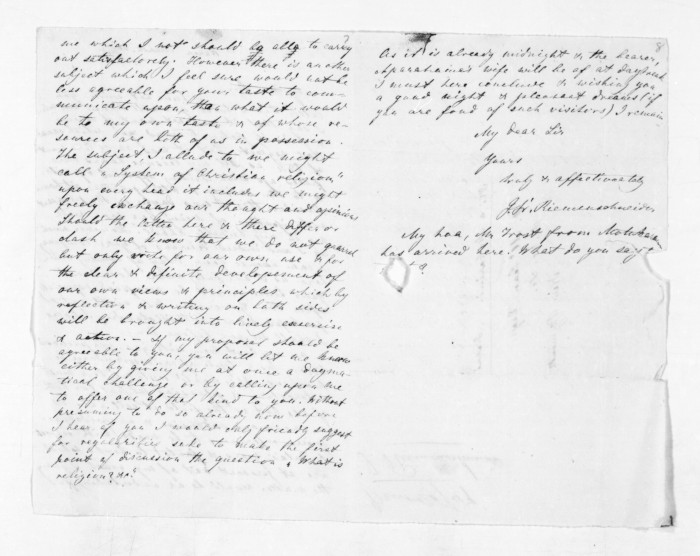 me which I not should be able to carry
out satisfactorily. However there is another
subject which I feel sure would not be
less agreeable for your taste to com-
municate upon, than what it would
be to my own taste & of whose re-
sources are both of us in possession.
The subject, I allude to we might
call a "System of Christian religion"
upon every head it includes we might
freely exchange our thought and opinions
Should the latter here & there differ or
clash we know that we do not quarrel
but only write for our own use & for
the clear & definite developement of
our own views & principles, which by
reflection & writing on both sides
will be brought into lively exercise
& action. — If my proposal should be
agreeable to you, you will let me know
either by giving me at once a dogma-
tical challenge or by calling upon me
to offer one of that kind to you. Without
presuming to do so already now before
I hear of you I would only friendly suggest
for regularities sake to make the first
point of discussion the question "What is
religion?"
8
As it is already midnight & the bearer,
wife will be of at daybreak
I must here conclude & wishing you
a good night & pleasant dreams (if
you are fond of such visitors) I remain
My dear Sir
Yours
truly & affectionately
J. Fr. Riemenschneider
My hoa, Mr Trost from
has arrived here! What do you say t